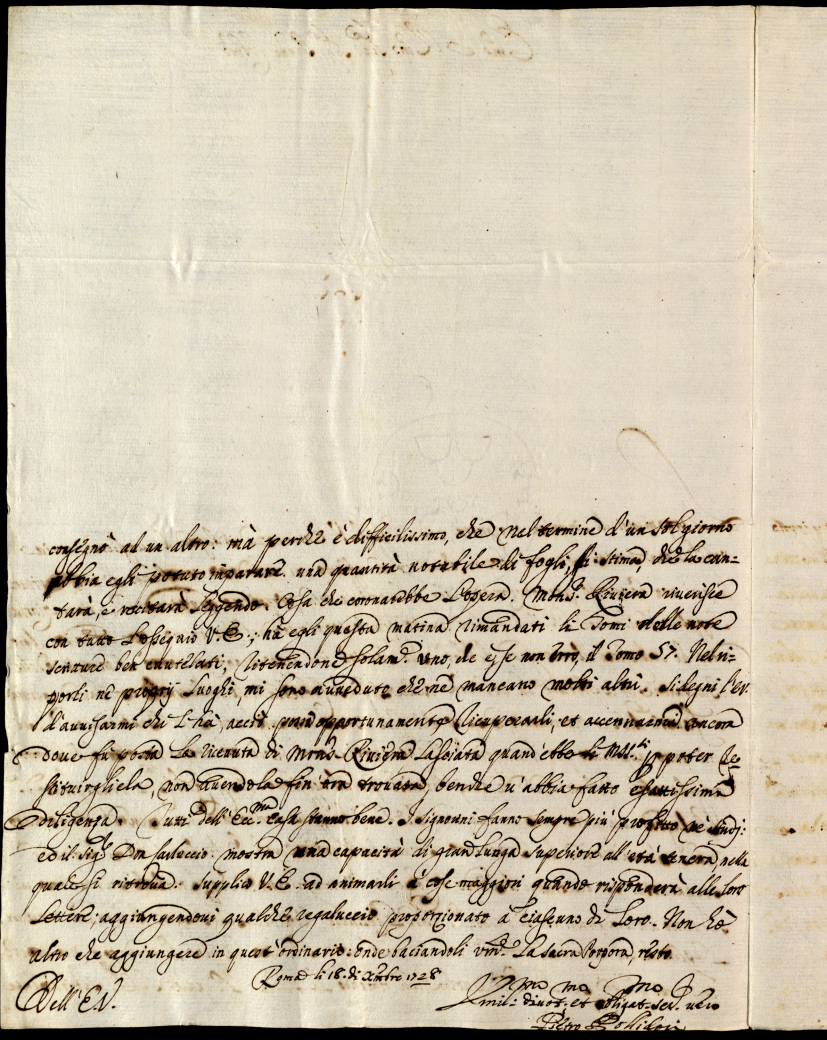 consegnò ad un altro: mà perche è difficilissimo, che nel termine d'un sol giorno
abbia egli potuto imparare una quantità notabile di fogli, si stima, che la can=
tarà, e recitarà leggendo. Cosa che coronarebbe l'opera. Mons.r Riviera riverisce
con tutto l'ossequio V.E.; hà egli questa matina rimandati li Tomi delle note
scritture ben cautelati, ritenendone solam.e uno, che è, se non erro, il Tomo 57. Nel ri=
porli ne proprij luoghi, mi sono avveduto che ne mancano molti altri. Si degni l'E.V.
d'avvisarmi chi l'hà, acciò possa opportunamente ricuperarli, et accennarmi ancora
dove fù posta la ricevuta di Mons.r Riviera lasciata quand'ebbe li MSS.ti p poter re=
stituirgliela, non avendola fin'ora trovata, benche v'abbia fatto esattissima
diligenza. Tutti dell'Ecc.ma casa stanno bene. I Signorini fanno sempre più profitto ne studj:
ed il Sig.r Don Carluccio mostra una capacità di gran lunga superiore all'età tenera, nella
quale si ritrova. Supplico V.E. ad animarli à cose maggiori quando risponderà alle loro
Lettere, aggiungendovi qualche regaluccio proporzionato à ciascuno di loro. Non hò
altro che aggiungere in quest'ordinario: onde baciandoli la sacra Porpora, resto.
Roma li 18. di Xmbre 1728
Dell'E.V.
Umil.mo divot.mo et obligat.mo ser.
Pietro Pollidori